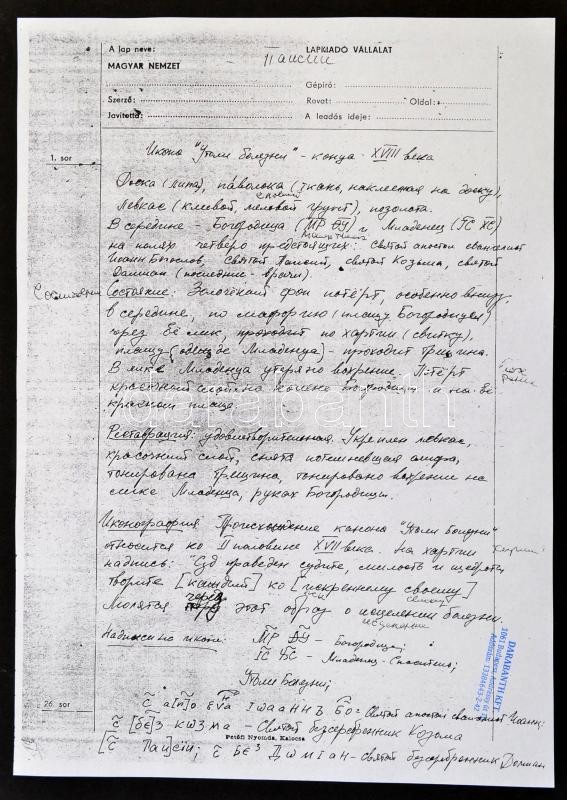 A lap neve:
MAGYAR NEMZET
LAPKIADÓ VÁLLALAT
Паисий
Gépíró:
Szerző: Rovat: Oldal:
Javította: A leadás ideje:
1. sor
Икона "Утоли болезни" - конца XVIII века
Доска (липа), паволока (ткань, наклеенная на доску),
Левкас (клеевой, меловой грунт), позолота.
В середине - Богородица (МР ѲУ) и Младенец (IС ХС)
на полях четверо предстоящих: святой апостол евангелист
Иоанн Богослов, святой Паисий, святой Козьма, святой
Дамиан (последние - врачи).
Состояние: Золочёный фон потёрт, особенно внизу,
в середине, по мафорию (плащу Богородицы)
через её лик, проходит по хартии (свитку),
плащу (одежде Младенца) - проходит трещина.
В лике Младенца утеряно вохрение. Потёрт
красочный слой на Богородицы и на её
красном плаще.
darabanth
Реставрация: удовлетворительная. Укреплен левкас,
красочный слой, снята потемневшая олифа,
тонирована трещина, тонировано вохрение на
лике Младенца, руках Богородицы.
Иконография Происхождение канона "Утоли болезни"
относится ко II половине XVII века. На хартии
надпись: "Суд праведен судите, милость и щедроты
творите [каждый] ко [искреннему своему]
Молятся через этот образ о исцелении болезни.
Надписи на иконе: МР ѲУ - Богородица;
IС ХС - Младенец - Спаситель;
Утоли Болезни;
26. sor
Святой апостол евангелист Иоанн;
С [БЕ]З КѠЗМА - Святой безсеребренник Козьма
Petőfi Nyomda, Kalocsa
[С ПАИ]СIЙ; С БЕЗ ДѠМIАН - Святой безсеребренник Домиан
DARABANTH KFT.